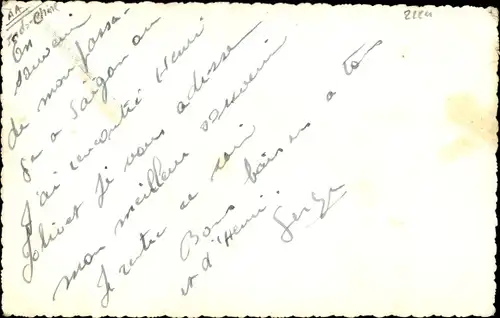 En
souvenir
de mon passa-
ge a Saïgon ou
J'ai rencontré Henri
Jolivet Je vous adresse
mon meilleur souvenir
Je rentre ce soir
Bons baisers a tous
et d'Henri.
Serge